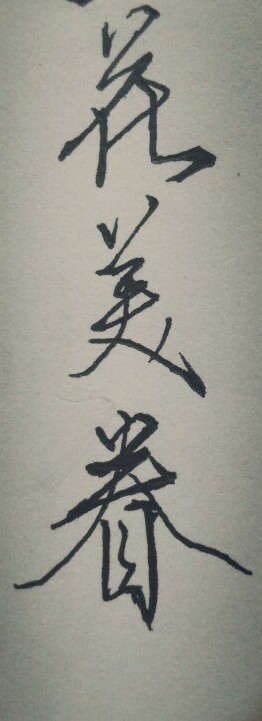 花美眷